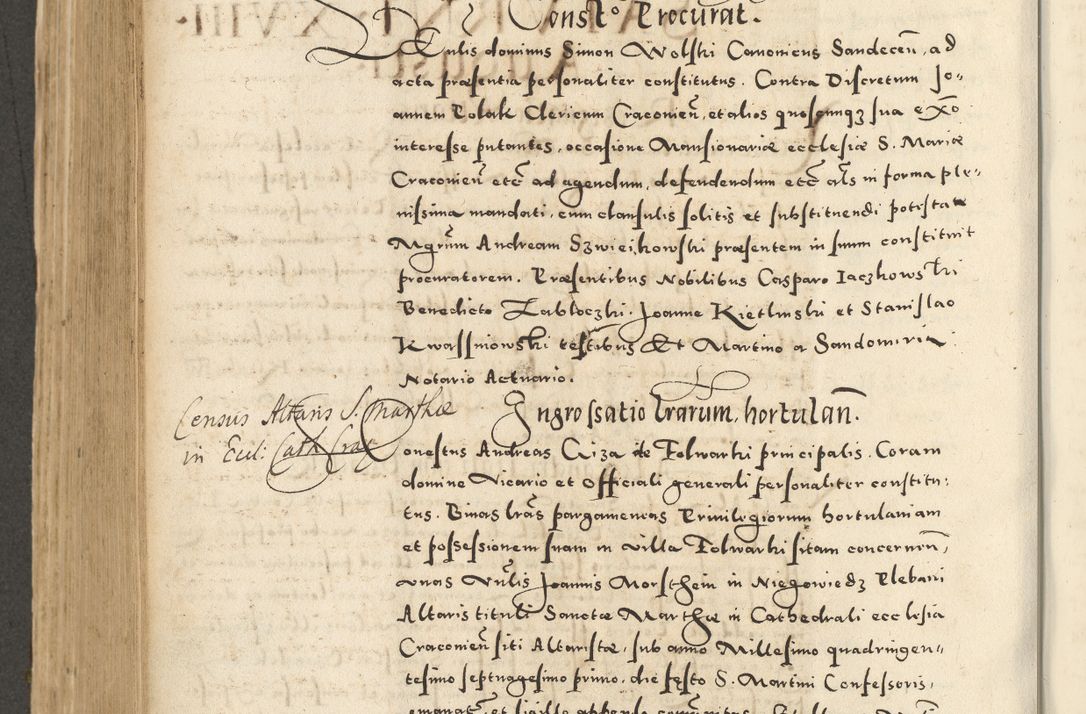 Const⁰ Procurat.
Vulis dominus Simon Wolski Canonicus Sandeceñ, ad
acta præsentia personaliter constitutus. Contra Discretum Jo-
annem Polak Clericum Cracovieñ, et alios quoscunq₃ sua
interesse putantes, occasione Mansionariæ ecclesiæ S. Mariæ
Cracovieñ etc̄ ad agendum, defendendum etc̄ als in forma ple-
nissima mandati, cum clausulis solitis et substituendi potestate
Mgrum Andream Szwieikowski præsentem in suum constituit
procuratorem. Præsentibus Nobilibus Casparo Iaczkowski
Benedicto Zabloczki, Joanne Kietlinski et Stanislao
Kwassniowski testibus Et Martino a Sandomiria
Notario Actuario.
Census Altaris S. Marthæ
in Eccl: Cath Crac
Ingrossatio lrarum, hortulañ.
onestus Andreas Ciza de Folwarki principalis. Coram
domine Vicario et Officiali generali personaliter constitu-
tus. Binas lras pargameneas Privilegiorum hortulaniam
et possessionem suam in villa Folwarki sitam concerneñ,
unas Vulis Joannis Morsthein in Niegowiedz Plebani
Altaris tituli Sanctæ Marthæ in Cathedrali ecclesia
Cracovieñ siti Altaristæ, sub anno Millesimo quadringen-
tesimo septuagesimo primo, die festo S. Martini Confessoris,